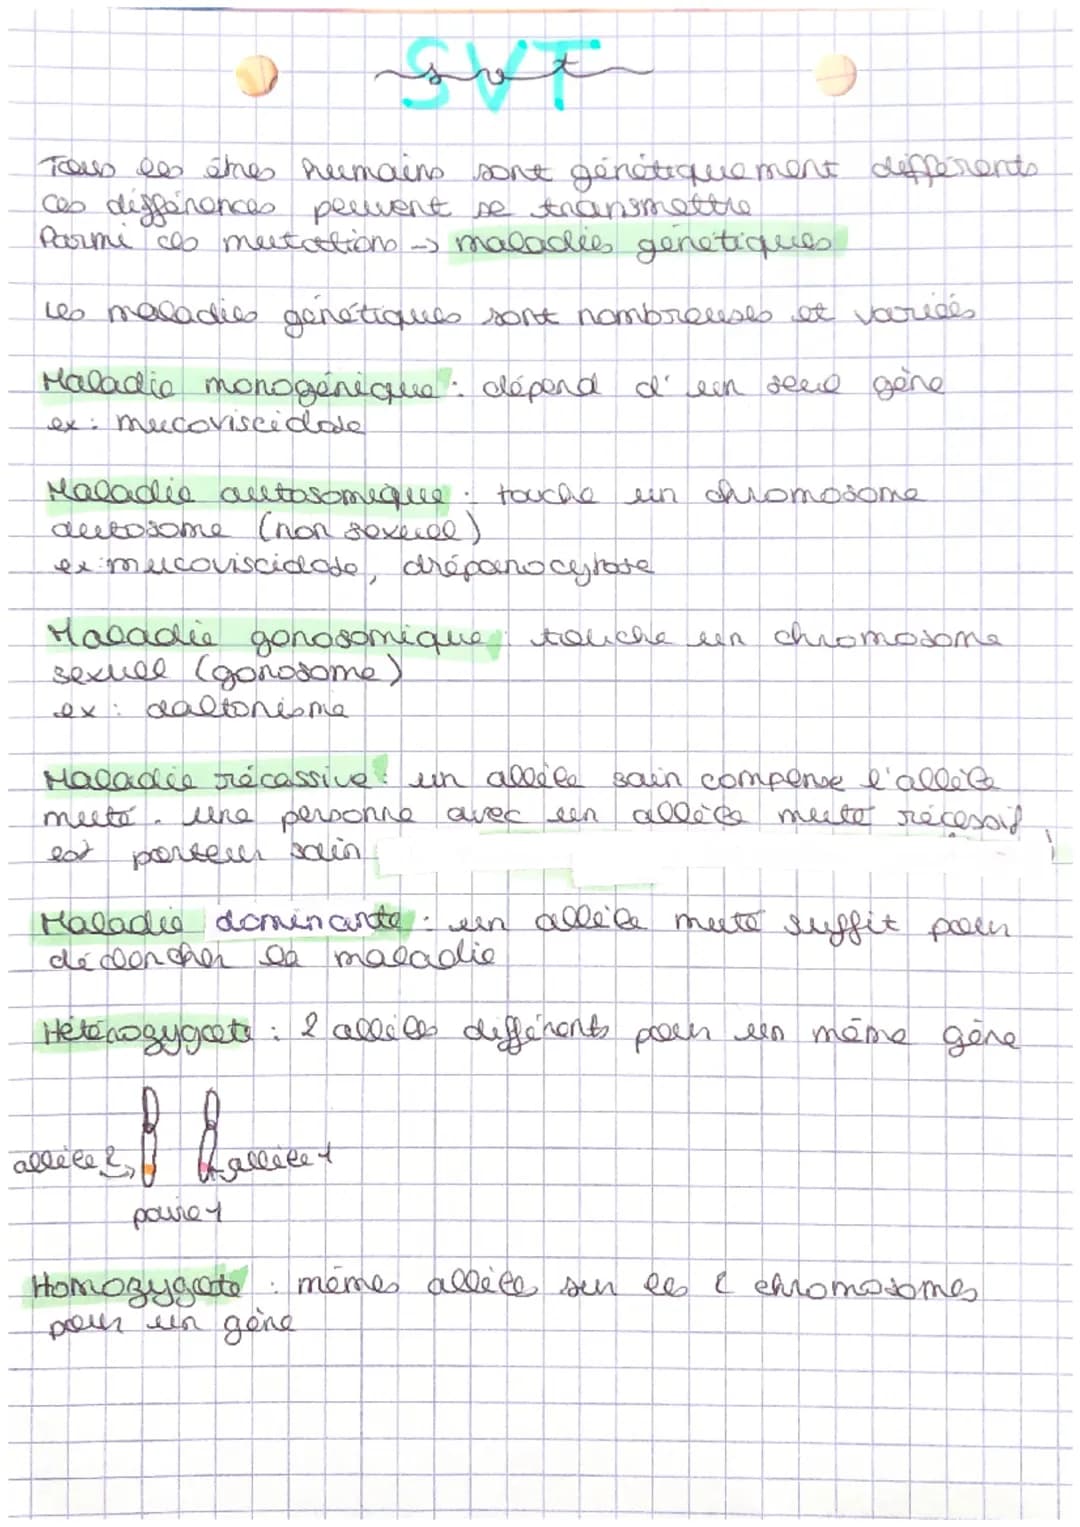 SVT
svt
Tous les êtres humains sont génétiquement différents
ces différences peuvent se transmettre
Parmi ces mutations → maladies génétiques
Les maladies génétiques sont nombreuses et variées
Maladie monogénique : dépend d'un seul gène
ex : mucoviscidose
Maladie autosomique : touche un chromosome
autosome (non sexuel)
ex : mucoviscidose, drépanocytose
Maladie gonosomique : touche un chromosome
sexuel (gonosome)
ex : daltonisme
Maladie récassive : un allèle sain compense l'allèle
muté. une personne avec un allèle muté récessif
est porteur sain
Maladie dominante : un allèle muté suffit pour
déclencher la maladie
Hétérozygote : 2 allèles différents pour un même gène
allèle 2 allèle 1
paire 1
Homozygote : mêmes allèles sur les 2 chromosomes
pour un gène